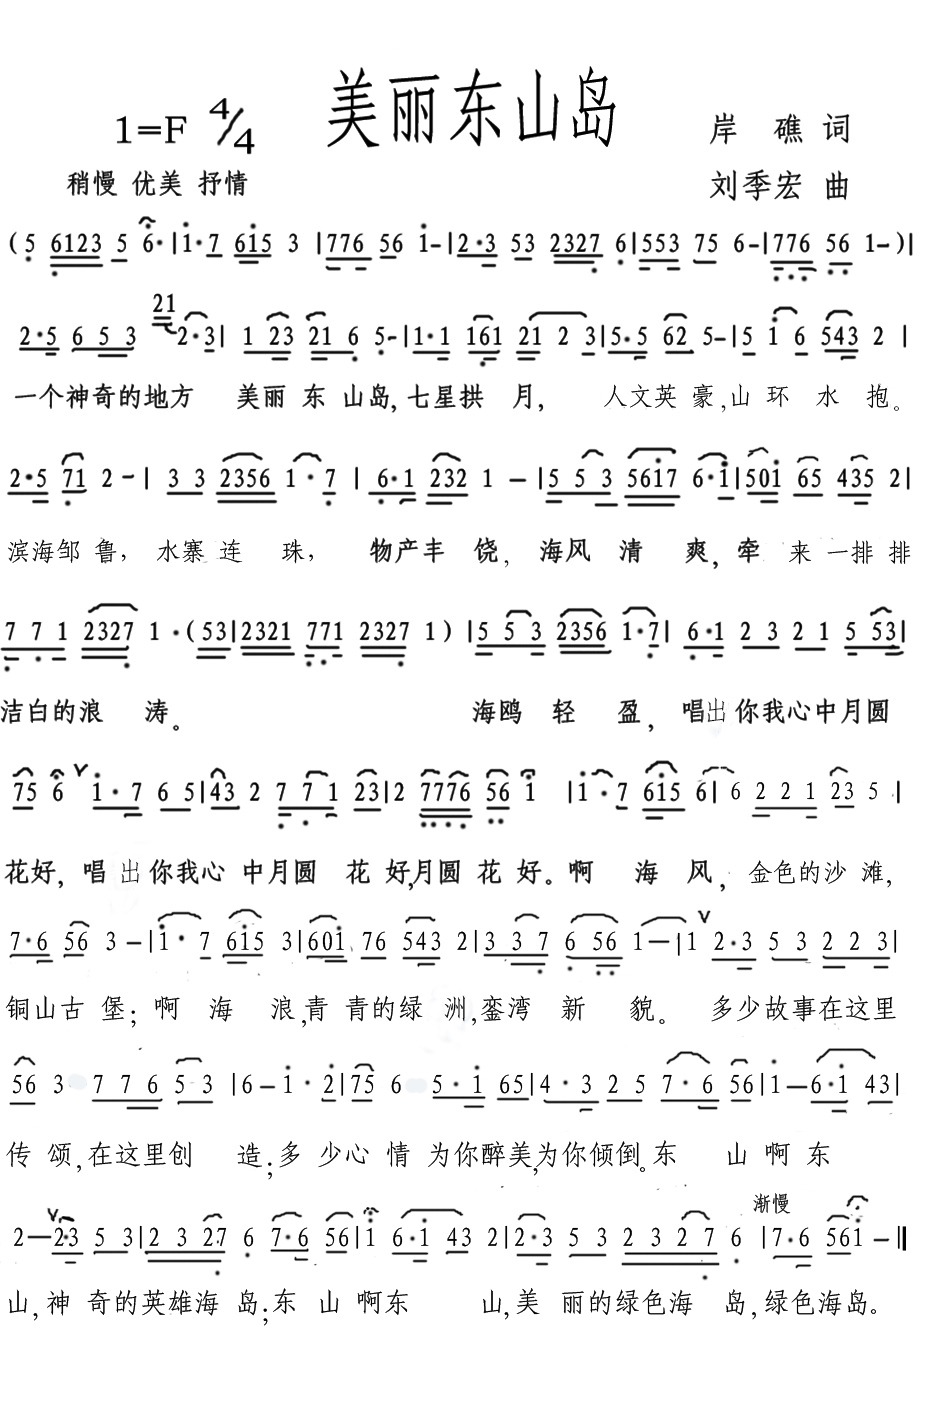 美丽东山岛
1=F 4/4
岸 礁 词
稍慢 优美 抒情
刘季宏 曲
(5 6123 5 6·|1·7 615 3 |776 56 1-|2·3 53 2327 6|553 75 6-|776 56 1-)|
21
2·5 6 5 3 2·3| 1 23 21 6 5-|1·1 161 21 2 3|5·5 62 5-|5 1 6 543 2 |
一个神奇的地方 美丽 东 山岛,七星拱 月, 人文英 豪,山 环 水 抱。
2·5 71 2-| 3 3 2356 1·7 | 6·1 232 1 -|5 5 3 5617 6·1|501 65 435 2|
滨海邹 鲁, 水寨 连 珠, 物产丰 饶, 海风 清 爽,牵 来 一排 排
7 7 1 2327 1·(53|2321 771 2327 1)|5 5 3 2356 1·7| 6·1 2 3 2 1 5 53|
洁白的浪 涛。 海鸥 轻 盈, 唱出你我心中月圆
75 6 ∨ 1·7 6 5|43 2 7 7 1 23|2 7776 56 1 |1·7 615 6| 6 2 2 1 23 5 |
花好, 唱 出你我心 中月圆 花 好,月圆 花 好。啊 海 风, 金色的沙 滩,
7·6 56 3 -|1·7 615 3|601 76 543 2|3 3 7 6 56 1—|1 ∨ 2·3 5 3 2 2 3|
铜山古 堡; 啊 海 浪,青 青的绿 洲,銮湾 新 貌。 多少故事在这里
56 3 7 7 6 5 3 |6-1·2|75 6 5·1 65|4·3 2 5 7·6 56|1—6·1 43|
传 颂,在这里创 造;多 少心 情 为你醉美,为你倾倒。东 山 啊 东
渐慢
2—∨2·3 5 3|2 3 27 6 7·6 56|1 6·1 43 2|2·3 5 3 2 3 2 7 6 |7·6 561 -‖
山,神 奇的英雄海 岛;东 山 啊东 山,美 丽的绿色海 岛,绿色海岛。